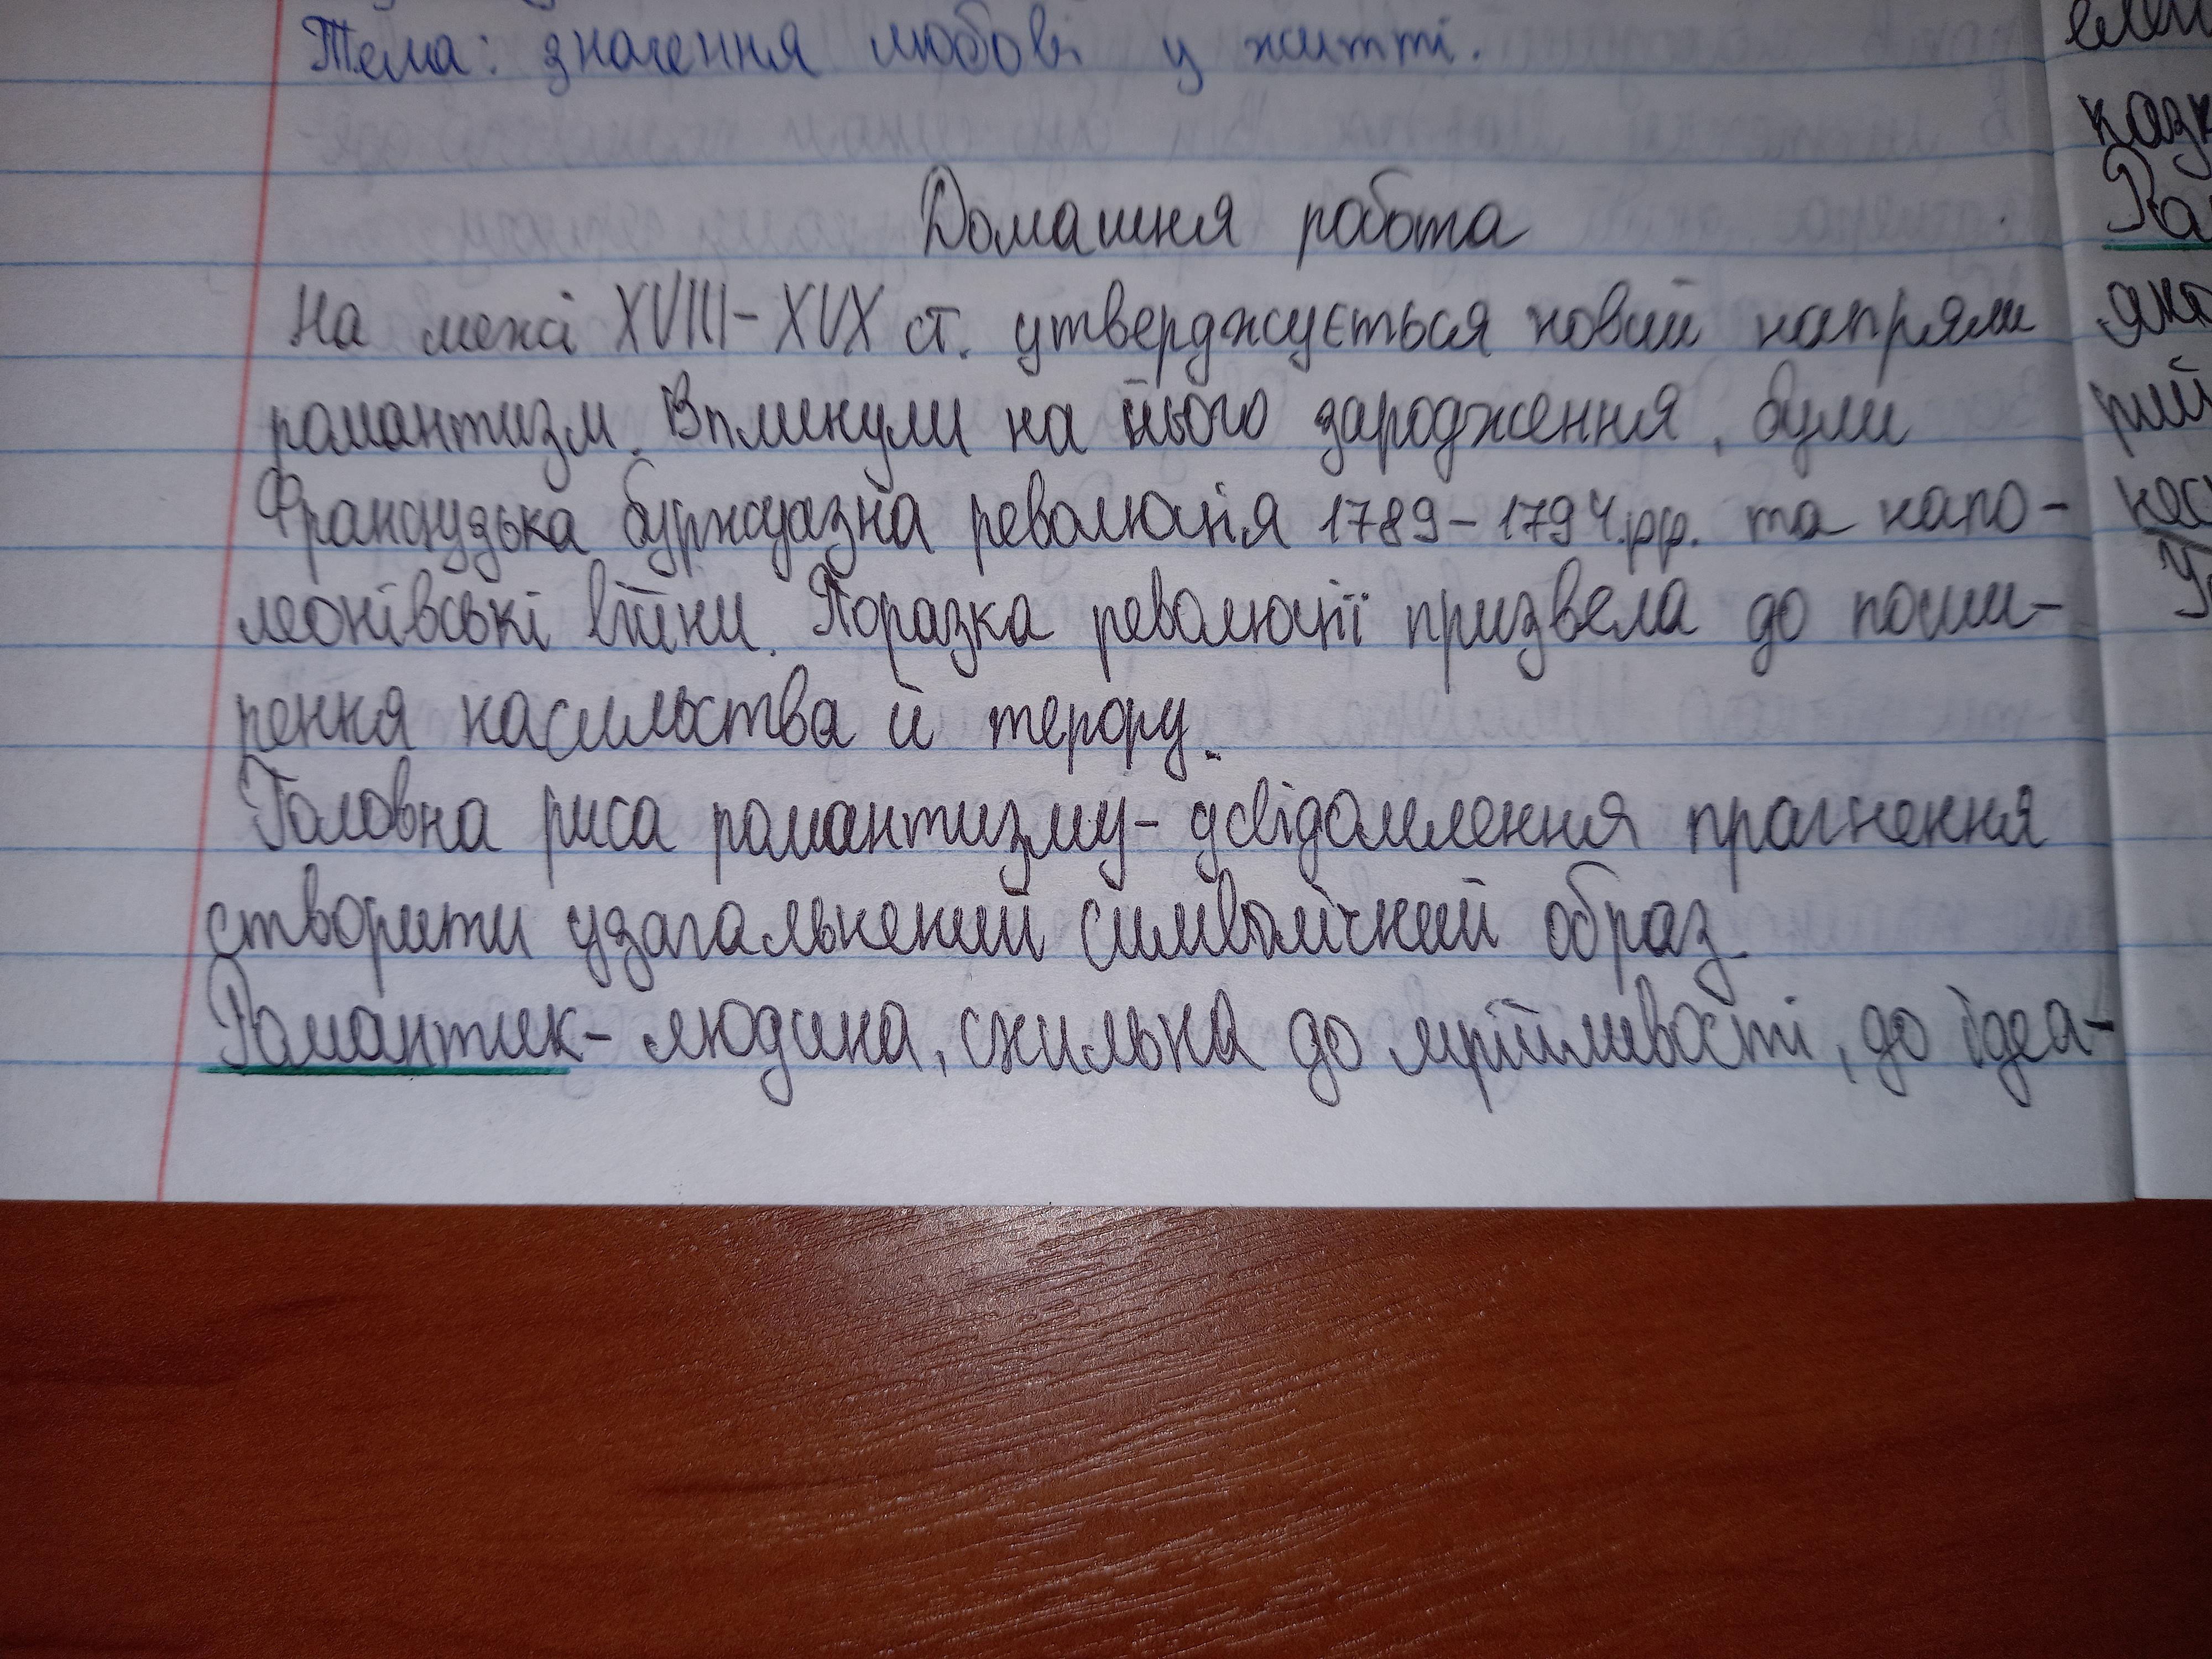 Тема: значення любові у житті.
Домашня робота
На межі XVIII-XVX ст. утверджується новий напрям
романтизм. Вплинули на його зародження, були
Французька буржуазна революція 1789-1794.рр. та напо-
леонівські війни. Поразка революції призвела до поши-
рення насильства й терору.
Головна риса романтизму- усвідомлення прагнення
створити узагальнений символічний образ.
Романтик- людина, схильна до мрійливості, до ідеа-
казк
Ра
яка
рий